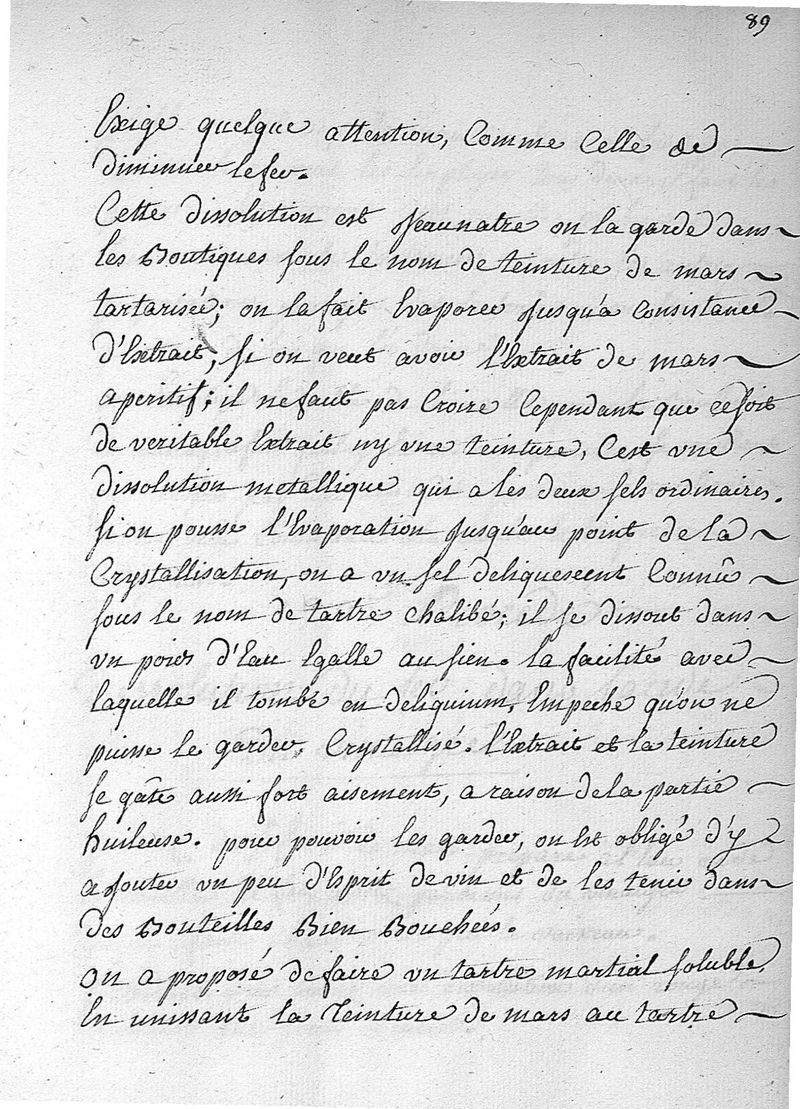 89
Exige quelque attention, Comme Celle de
diminuer le feu.
Cette dissolution est on la garde dans
les Boutiques sous le nom de teinture de mars
tartarisée; on la fait Evaporer Jusqu'a Consistance
d'Extrait, si on veut avoir l'Extrait de mars
aperitif; il ne faut pas Croire Cependant que ce soit
de veritable Extrait ny vne teinture, C'est vne
dissolution metallique qui a les deux sels ordinaires.
si on pousse l'Evaporation Jusqu'au point de la
Crystallisation, on a vn sel deliquescent Connû
sous le nom de tartre chalibé; il se dissout dans
vn poids d'Eau Egalle au sien. la facilité avec
laquelle il tombe en deliquium, Empeche qu'on ne
puisse le garder Crystallisé. l'Extrait et la teinture
se gâte aussi fort aisement, a raison de la partie
huileuse. pour pouvoir les garder, on Est obligé d'y
ajouter vn peu d'Esprit de vin et de les tenir dans
des Bouteilles Bien Bouchées.
On a proposé de faire vn tartre martial soluble,
En unissant la Teinture de mars au tartre